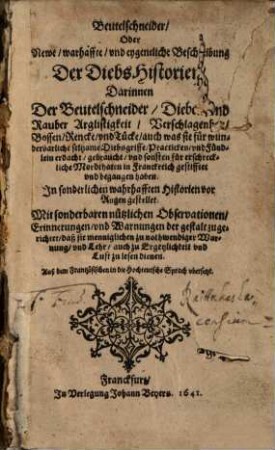 Beutelschneider/
Oder
Newe/ warhaffte/ vnd eygentliche Beschreibung
Der Diebs Historien
Darinnen
Der Beutelschneider/ Diebe vnd
Rauber Arglistigkeit/ Verschlagenheit/
Bossen/ Rencke/ vnd Tücke/ auch was sie für wun-
derbarliche seltzame Diebsgriffe/ Practicken/ vnd Fünd-
lein erdacht/ gebraucht/ vnd sonsten für erschreck-
liche Mordthaten in Franckreich gestifftet
vnd begangen haben.
In sonderlichen wahrhafften Historien vor
Augen gestellet.
Mit sonderbaren nützlichen Observationen/
Erinnerungen/ vnd Warnungen der gestalt zuge-
richtet/ daß sie menniglichen zu nothwendiger War-
nung/ vnd Lehr/ auch zu Ergetzlichkeit vnd
Lust zu lesen dienen.
Auß dem Frantzösischen in die Hochteutsche Sprach vbersetzt.
Franckfurt/
In Verlegung Johann Beyers. 1641.